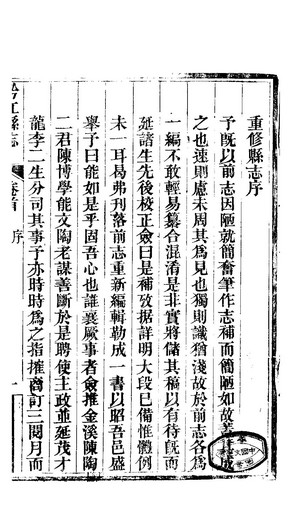 重修縣志序
予既以前志因陋就簡奮筆作志補而簡陋如故蓋 成
之也速則慮未周其為見也獨則識猶淺故於前志各為
一編不敢輕易纂合混淆是非實將儲其稿以有待既而
延諸生先後校正僉曰是補攷据詳明大段已備惟體例
未一耳曷弗刋落前志重新編輯勒成一書以昭吾邑盛
舉予曰能如是乎固吾心也誰襄厥事者僉推金溪陳陶
二君陳博學能文陶老謀善斷於是聘使主政並延茂才
龍李二生分司其事子亦時時為之指摧商訂三閱月而
黔江縣志
卷首
序
一